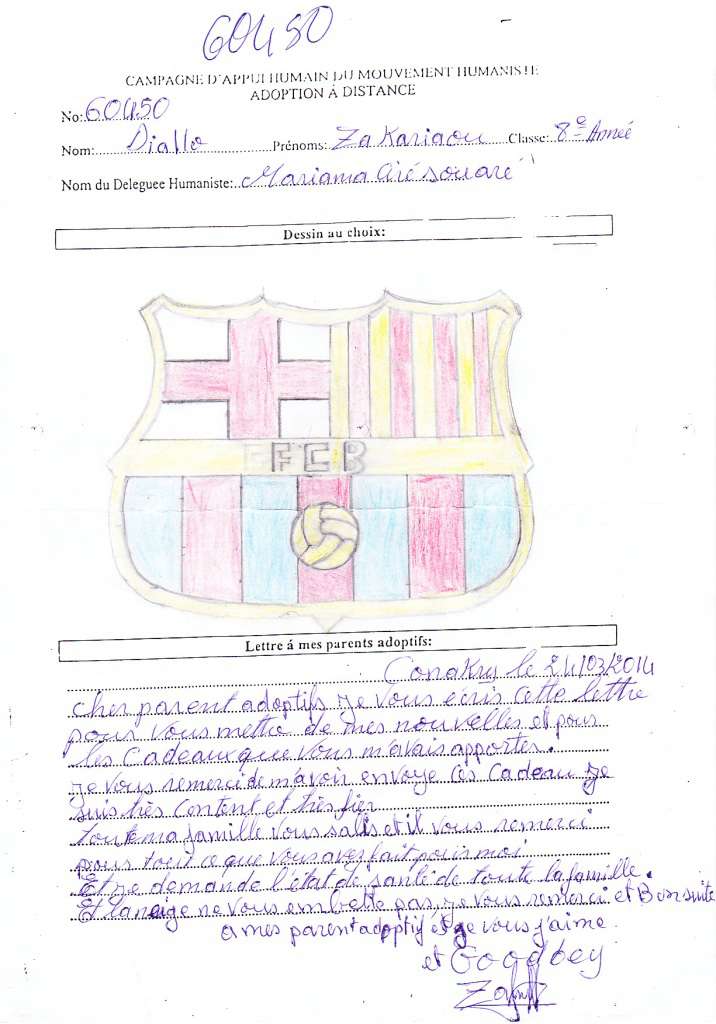 60450
CAMPAGNE D'APPUI HUMAIN DU MOUVEMENT HUMANISTE
ADOPTION À DISTANCE
No: 60450
Nom: Diallo Prénoms: Zakariaou Classe: 8e Année
Nom du Deleguee Humaniste: Mariama Ciré souaré
Dessin au choix:
FCB
Lettre á mes parents adoptifs:
Conakry le 24/03/2014
cher parent adoptifs je vous ecris cette lettre
pour vous mettre de mes nouvelles et pour
les cadeaux que vous m'avais apporter.
je vous remerci de m'avoir envoye ces cadeau je
suis très content et très fier
toute ma famille vous salis et il vous remerci
pour tout ce que vous avez fait pour moi
Et je demande l'état de santé de toute la famille.
Et la neige ne vous embette pas, je vous remerci et Bonsuite
a mes parent adoptif et je vous j'aime
et Goodbey